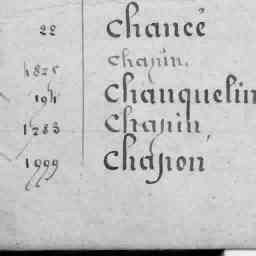 22 Chancé
1825 Chapin.
194 Chanquelin
1283 Chapin
1999 Chapon